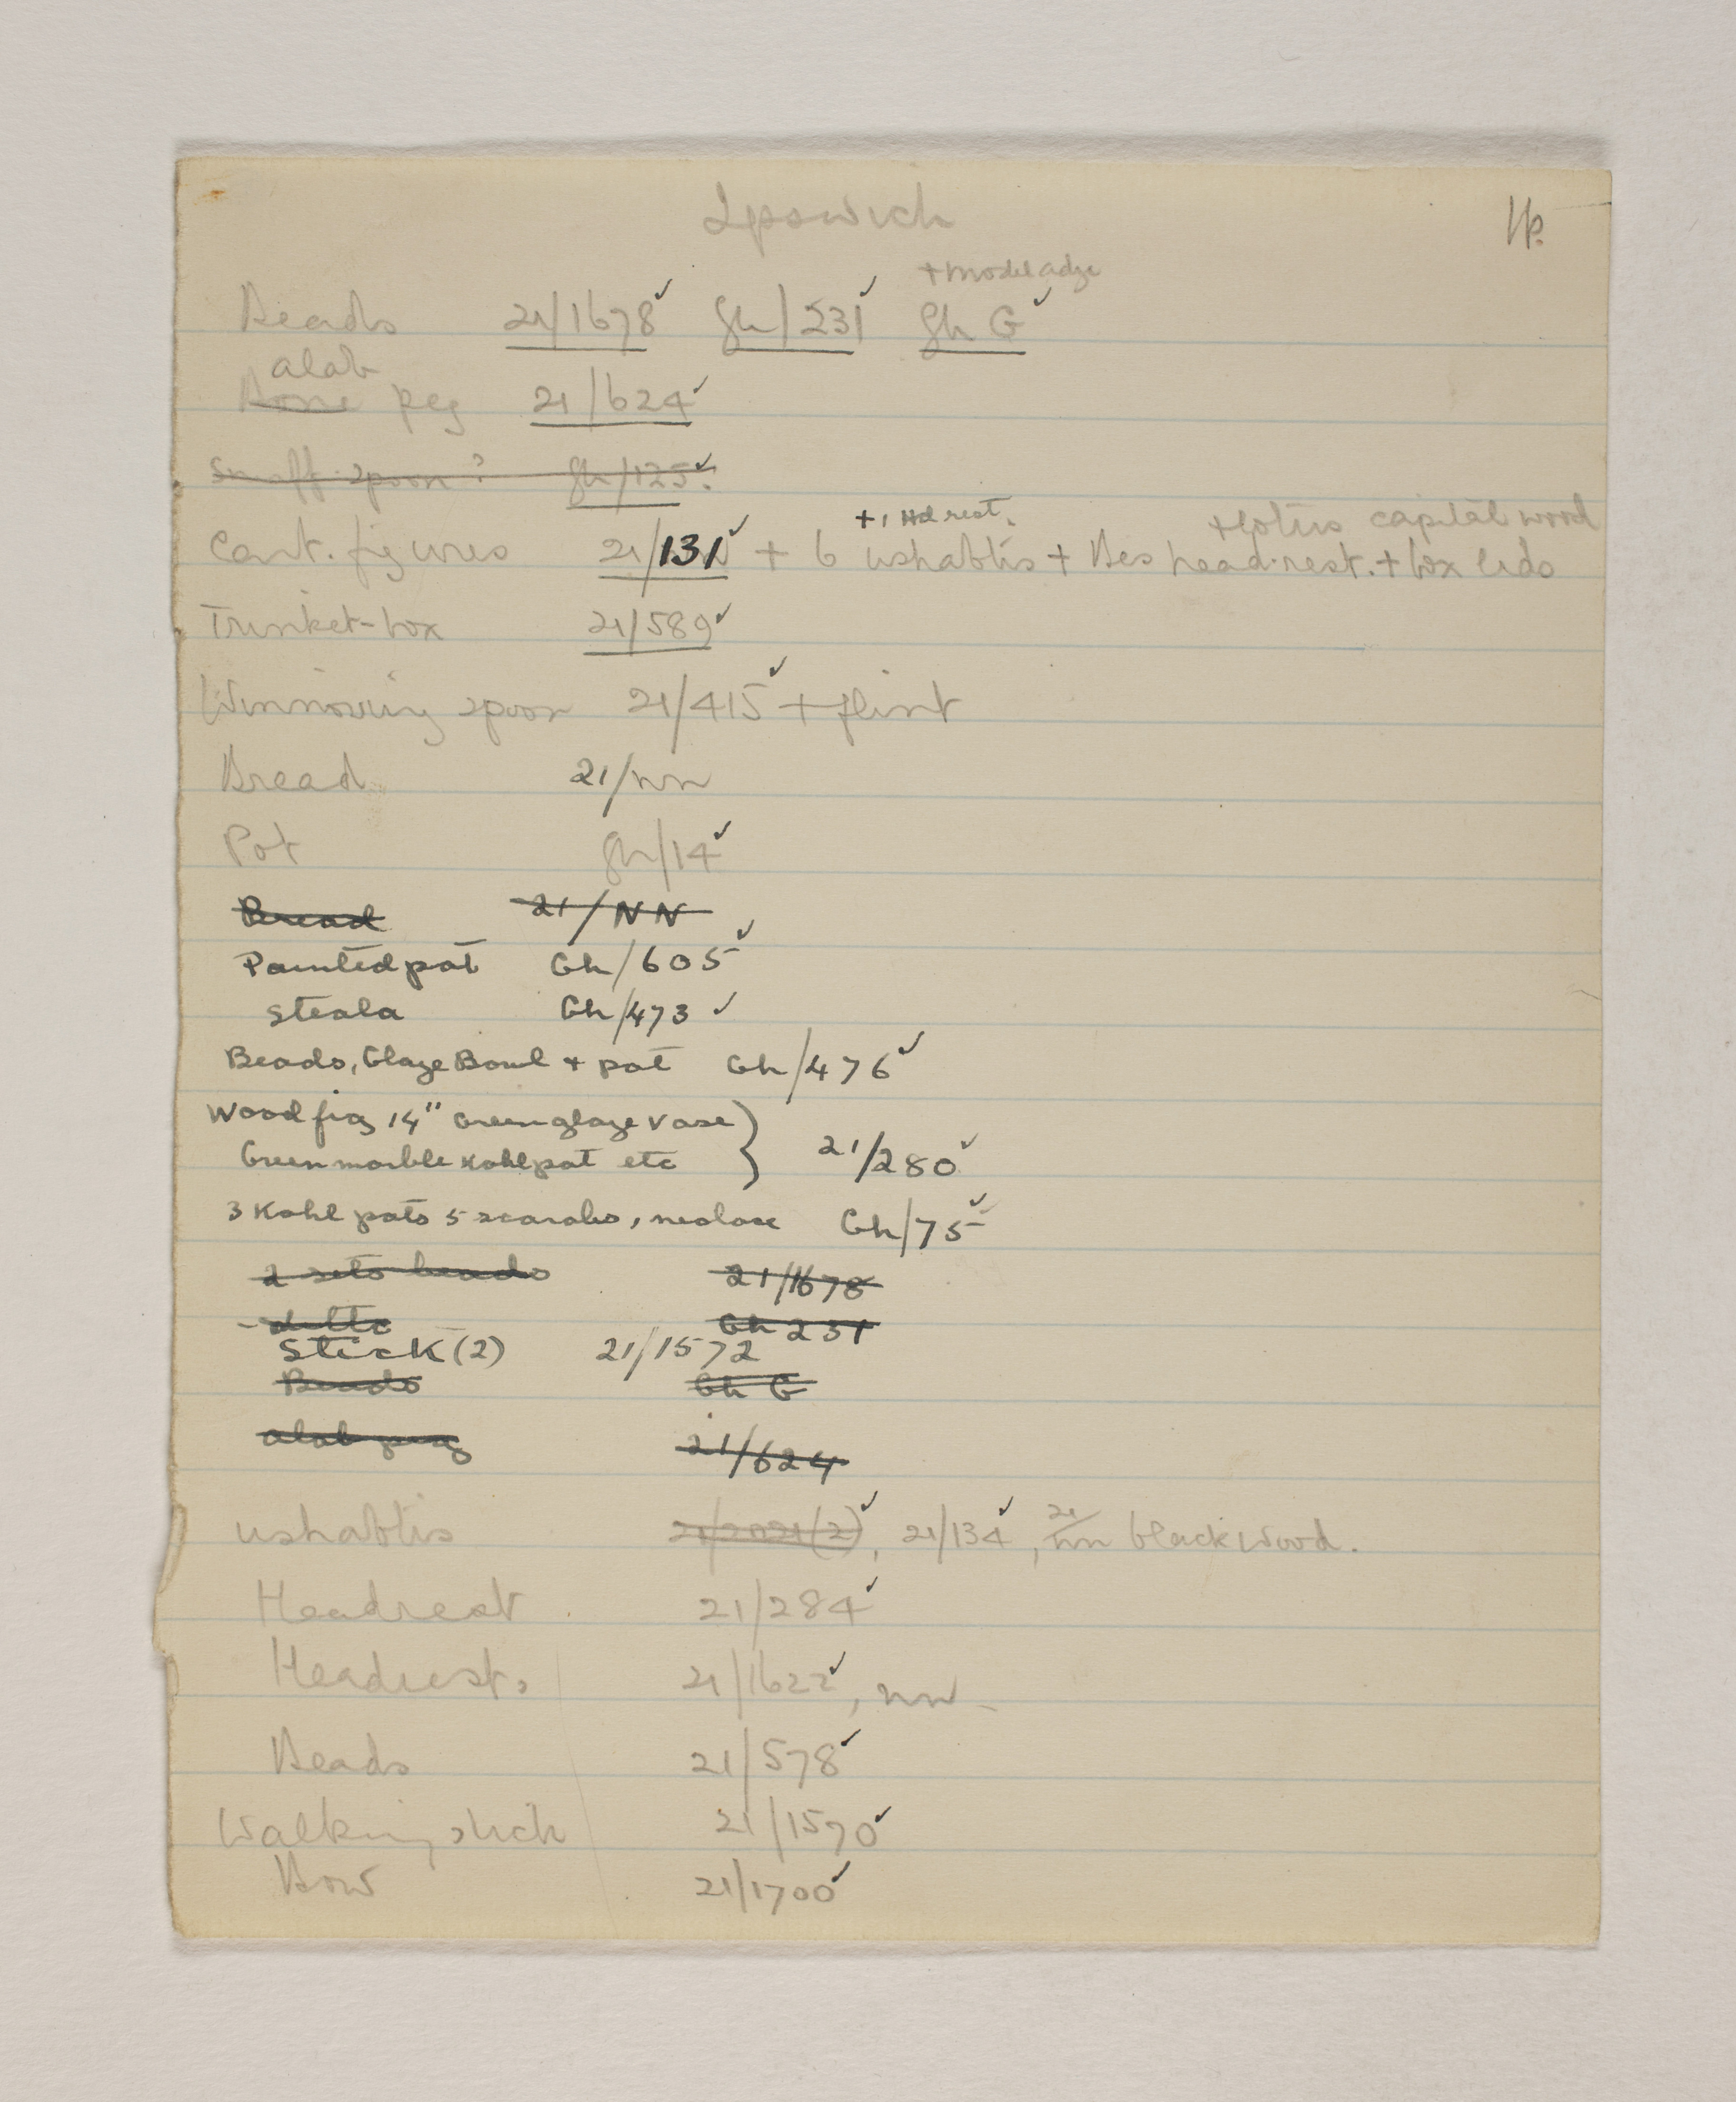 Ipswich
Ip.
+ model adge
Beads 21/1678 ✓ gh/231 ✓ gh G ✓
alab
Bone peg 21/624 ✓
Snuff-spoon? gh/125. ✓
+ 1 Hd rest. + lotus capital wood
Cart. figures 21/131 ✓ + 6 ushabtis + Bes head-rest. + box lids
Trinket-box 21/589 ✓
Winnowing spoon 21/415 ✓ + flint
Bread 21/nn
Pot gh/14 ✓
Bread 21/NN
Painted pot Gh/605 ✓
Steala Gh/473 ✓
Beads, Glaze Bowl + pot Gh/476 ✓
Wood fig 14" Green glaze vase
Green marble Kohl pot etc } 21/280 ✓
3 Kohl pots 5 scarabs, neclace Gh/75 ✓
2 sets beads 21/1678
- ditto Gh 231
Stick (2) 21/1572
Beads Gh G
alab peg 21/624
ushabtis 21/2021(2) ✓, 21/134 ✓, 21/nn black wood.
Headrest. 21/284 ✓
Headrest. 21/1622 ✓, nn -
Beads 21/578 ✓
Walking stick 21/1570 ✓
Bow 21/1700 ✓